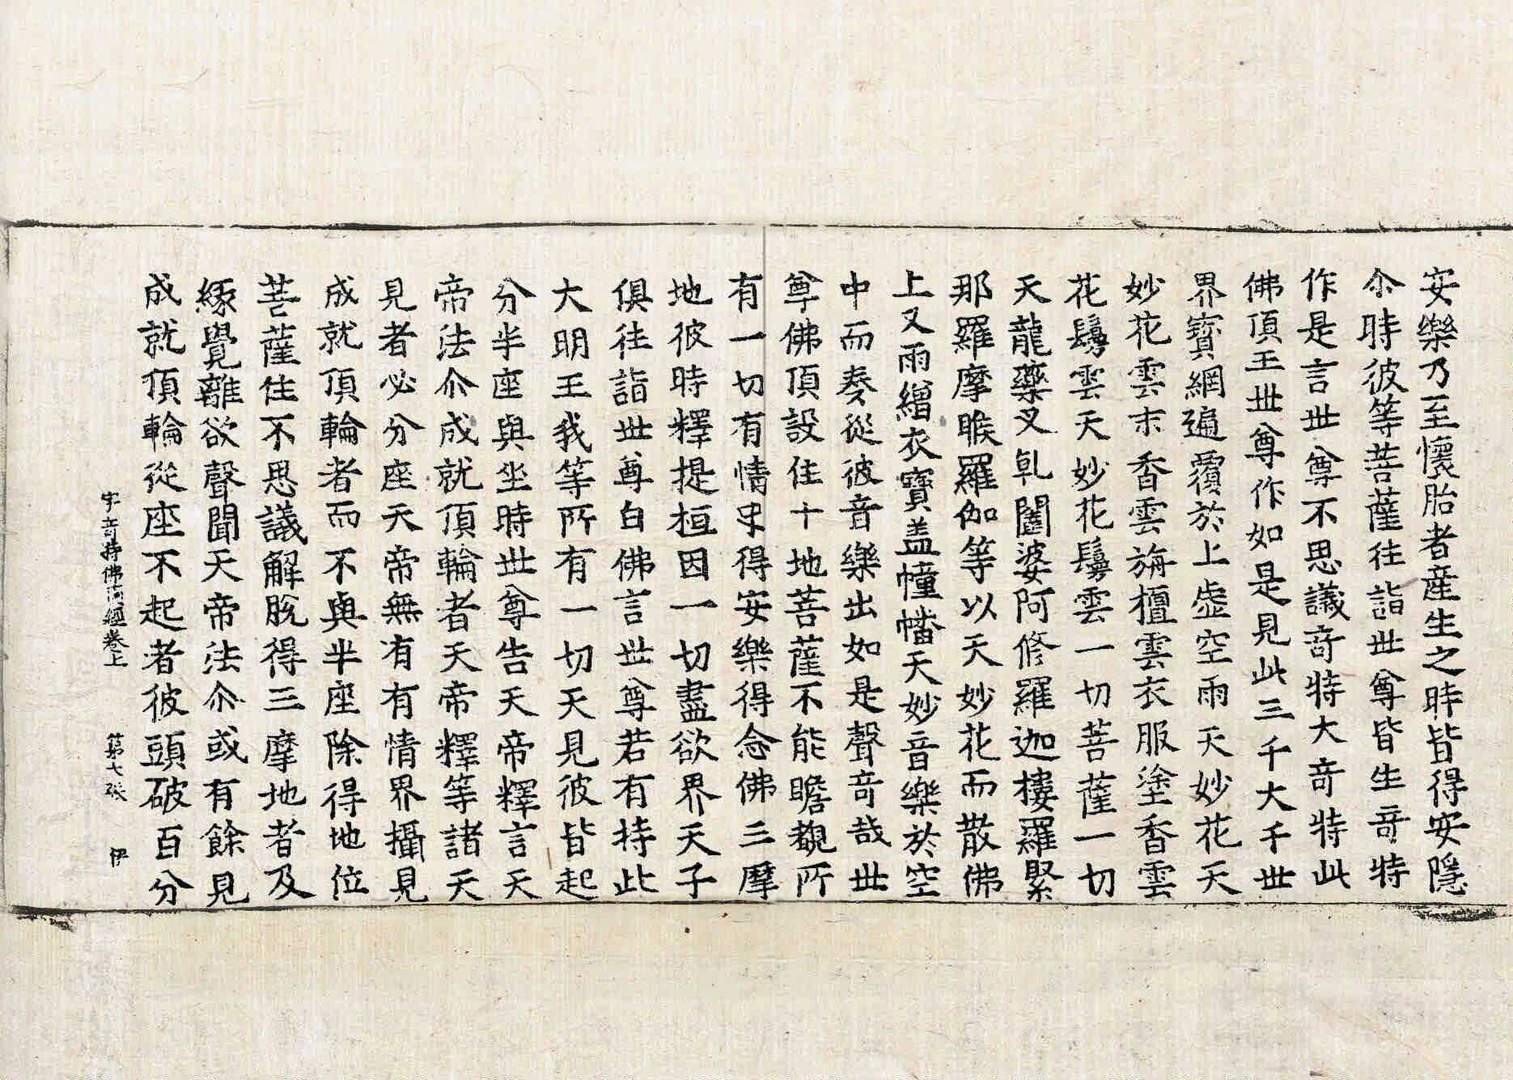 安樂乃至懷胎者產生之時皆得安隱
尒時彼等菩薩往詣世尊皆生奇特
作是言世尊不思議奇特大奇特此
佛頂王世尊作如是見此三千大千世
界寶網遍覆於上虛空雨天妙花天
妙花雲末香雲旃檀雲衣服塗香雲
花鬘雲天妙花鬘雲一切菩薩一切
天龍藥叉乹闥婆阿修羅迦樓羅緊
那羅摩睺羅伽等以天妙花而散佛
上又雨繒衣寶盖幢幡天妙音樂於空
中而奏從彼音樂出如是聲奇哉世
尊佛頂設住十地菩薩不能瞻覩所
有一切有情皆得安樂得念佛三摩
地彼時釋提桓因一切盡欲界天子
俱往詣世尊白佛言世尊若有持此
大明王我等所有一切天見彼皆起
分半座與坐時世尊告天帝釋言天
帝法尒成就頂輪者天帝釋等諸天
見者必分座天帝無有有情界攝見
成就頂輪者而不與半座除得地位
菩薩住不思議解脫得三摩地者及
緣覺離欲聲聞天帝法尒或有餘見
成就頂輪從座不起者彼頭破百分
字竒特佛頂經卷上 第七張 伊